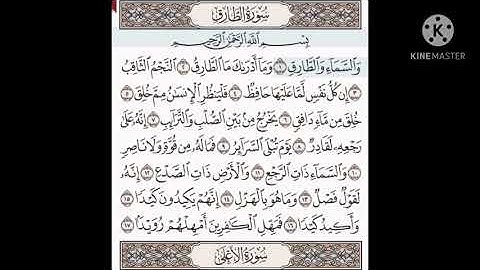 سُورَةُ الطَّارِقِ
بِسْمِ اللَّهِ الرَّحْمَٰنِ الرَّحِيمِ
وَالسَّمَاءِ وَالطَّارِقِ ١ وَمَا أَدْرَىٰكَ مَا الطَّارِقُ ٢ النَّجْمُ الثَّاقِبُ
٣ إِن كُلُّ نَفْسٍ لَّمَّا عَلَيْهَا حَافِظٌ ٤ فَلْيَنظُرِ الْإِنسَٰنُ مِمَّ خُلِقَ ٥
خُلِقَ مِن مَّاءٍ دَافِقٍ ٦ يَخْرُجُ مِنۢ بَيْنِ الصُّلْبِ وَالتَّرَائِبِ ٧ إِنَّهُۥ عَلَىٰ
رَجْعِهِۦ لَقَادِرٌ ٨ يَوْمَ تُبْلَى السَّرَائِرُ ٩ فَمَا لَهُۥ مِن قُوَّةٍ وَلَا نَاصِرٍ
١٠ وَالسَّمَاءِ ذَاتِ الرَّجْعِ ١١ وَالْأَرْضِ ذَاتِ الصَّدْعِ ١٢ إِنَّهُۥ
لَقَوْلٌ فَصْلٌ ١٣ وَمَا هُوَ بِالْهَزْلِ ١٤ إِنَّهُمْ يَكِيدُونَ كَيْدًا ١٥
وَأَكِيدُ كَيْدًا ١٦ فَمَهِّلِ الْكَٰفِرِينَ أَمْهِلْهُمْ رُوَيْدًۢا ١٧
سُورَةُ الْأَعْلَىٰ
KINEMASTER